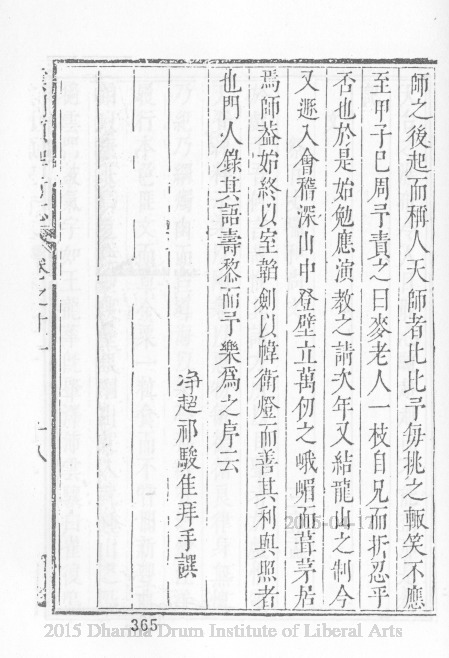 師之後起而稱人天師者比比予每挑之輙笑不應
至甲子巳周予責之曰麥老人一枝自兄而折忍乎
否也於是始勉應演教之請次年又結龍山之制今
又遯入會稽深山中登壁立萬仞之峨嵋而葺茅居
焉師葢始終以室韜劍以幃衛燈而善其利與照者
也門人錄其語壽黎而予樂為之序云
净超祁駿佳拜手譔
卷之十一
十八
365
2015-04-17
2015 Dharma Drum Institute of Liberal Arts